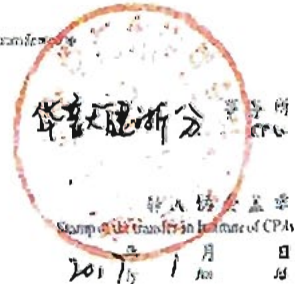 华普天健浙分 事务所
CPAs
转入协会盖章
Stamp of the transfer-in Institute of CPAs
2017年 1 月 日
/y /m /d